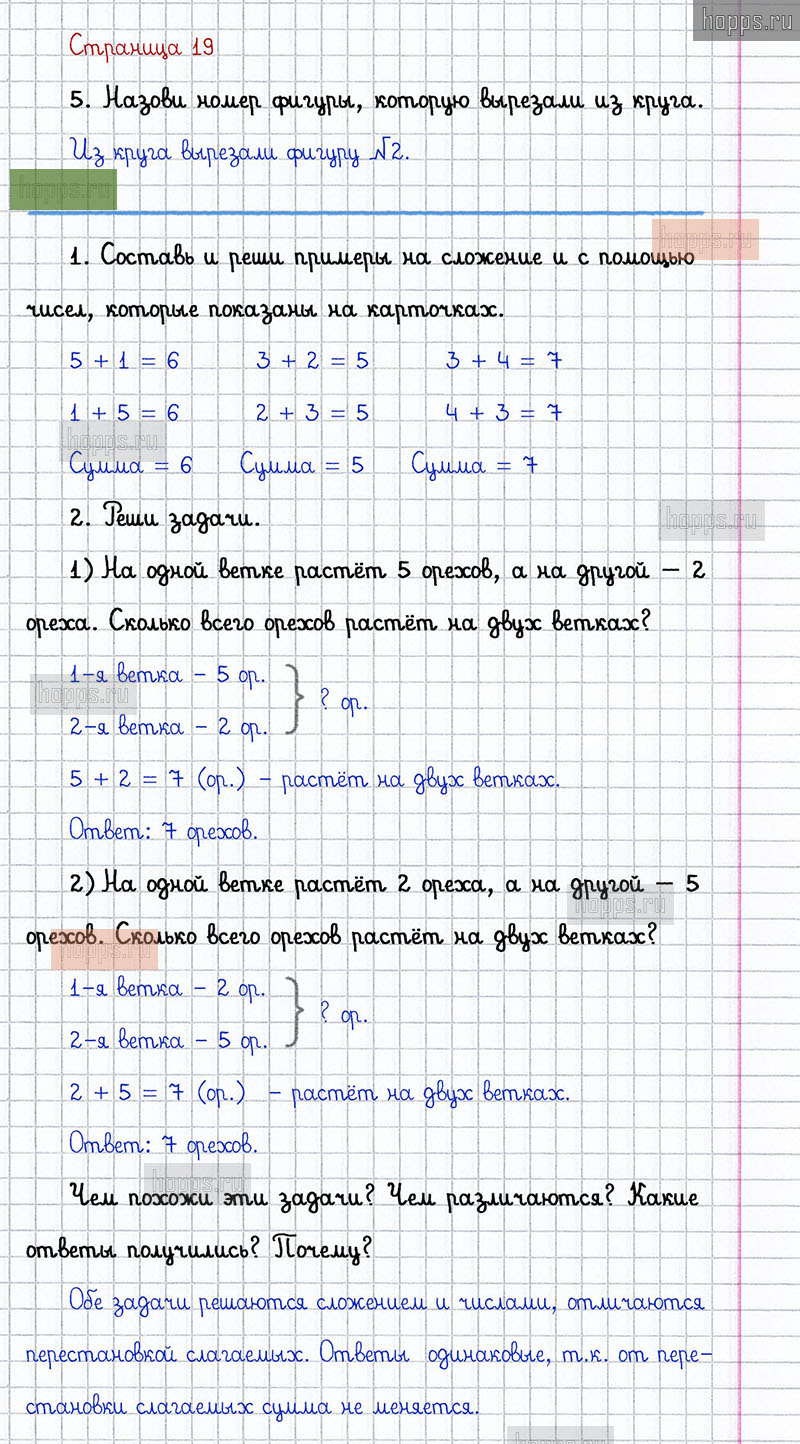 hopps.ru
Страница 19
5. Назови номер фигуры, которую вырезали из круга.
Из круга вырезали фигуру №2.
hopps.ru
hopps.ru
1. Составь и реши примеры на сложение и с помощью
чисел, которые показаны на карточках.
5 + 1 = 6 3 + 2 = 5 3 + 4 = 7
1 + 5 = 6 2 + 3 = 5 4 + 3 = 7
hopps.ru
Сумма = 6 Сумма = 5 Сумма = 7
2. Реши задачи.
hopps.ru
1) На одной ветке растёт 5 орехов, а на другой – 2
ореха. Сколько всего орехов растёт на двух ветках?
1-я ветка – 5 ор.
hopps.ru
? ор.
2-я ветка – 2 ор.
5 + 2 = 7 (ор.) – растёт на двух ветках.
Ответ: 7 орехов.
2) На одной ветке растёт 2 ореха, а на другой – 5
hopps.ru
орехов. Сколько всего орехов растёт на двух ветках?
hopps.ru
1-я ветка – 2 ор.
? ор.
2-я ветка – 5 ор.
2 + 5 = 7 (ор.) – растёт на двух ветках.
Ответ: 7 орехов.
hopps.ru
Чем похожи эти задачи? Чем различаются? Какие
ответы получились? Почему?
Обе задачи решаются сложением и числами, отличаются
перестановкой слагаемых. Ответы одинаковые, т.к. от пере-
становки слагаемых сумма не меняется.
hopps.ru